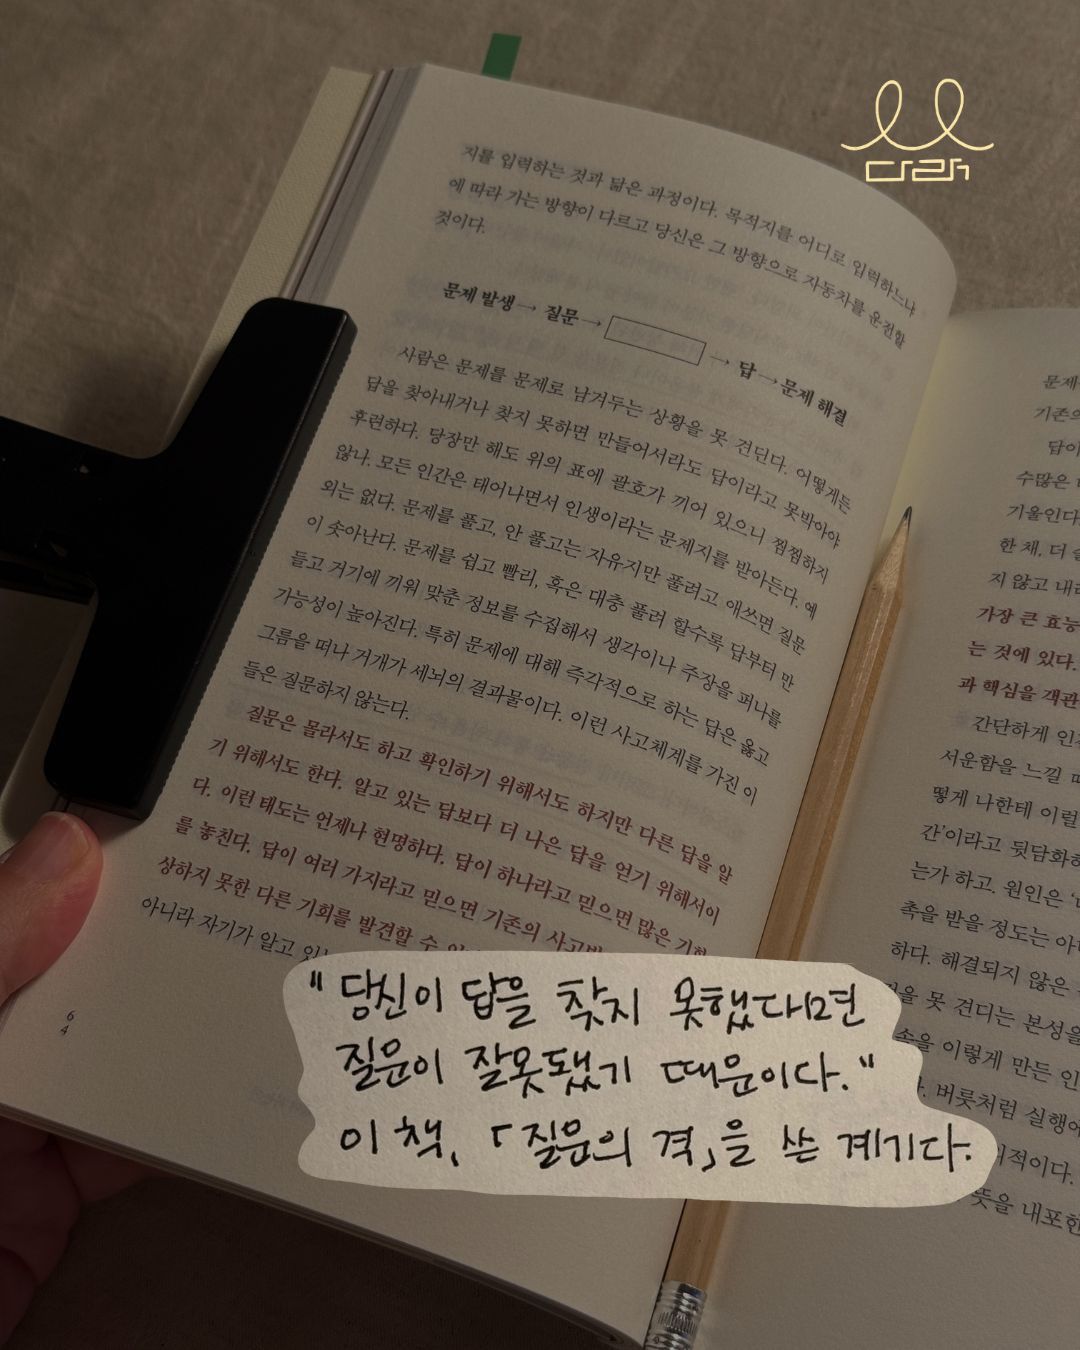 다락
지를 입력하는 것과 닮은 과정이다. 목적지를 어디로 입력하느냐
에 따라 가는 방향이 다르고 당신은 그 방향으로 자동차를 운전할
것이다.
문제 발생 → 질문 → → 답 → 문제 해결
사람은 문제를 문제로 남겨두는 상황을 못 견딘다. 어떻게든
답을 찾아내거나 찾지 못하면 만들어서라도 답이라고 못박아야
후련하다. 당장만 해도 위의 표에 괄호가 끼어 있으니 찜찜하지
않나. 모든 인간은 태어나면서 인생이라는 문제지를 받아든다. 예
외는 없다. 문제를 풀고, 안 풀고는 자유지만 풀려고 애쓰면 질문
이 솟아난다. 문제를 쉽고 빨리, 혹은 대충 풀려 할수록 답부터 만
들고 거기에 끼워 맞춘 정보를 수집해서 생각이나 주장을 펴나를
가능성이 높아진다. 특히 문제에 대해 즉각적으로 하는 답은 옳고
그름을 떠나 거개가 세뇌의 결과물이다. 이런 사고체계를 가진 이
들은 질문하지 않는다.
질문은 몰라서도 하고 확인하기 위해서도 하지만 다른 답을 알
기 위해서도 한다. 알고 있는 답보다 더 나은 답을 얻기 위해서이
다. 이런 태도는 언제나 현명하다. 답이 하나라고 믿으면 많은 기회
를 놓친다. 답이 여러 가지라고 믿으면 기존의
상하지 못한 다른 기회를 발견할 수
아니라 자기가 알고
64
"당신이 답을 찾지 못했다면
질문이 잘못됐기 때문이다."
이 책, 「질문의 격」을 쓴 계기다.
기존의
수많은
기울인다
한 채, 더
지 않고
가장 큰 효능
는 것에 있다.
과 핵심을
간단하게
서운함을 느낄
떻게 나한테 이럴
간'이라고
는가 하고. 원인은
촉을 받을 정도는
하다. 해결되지 않은
을 못 견디는 본성을
속을 이렇게 만든
버릇처럼
뜻을